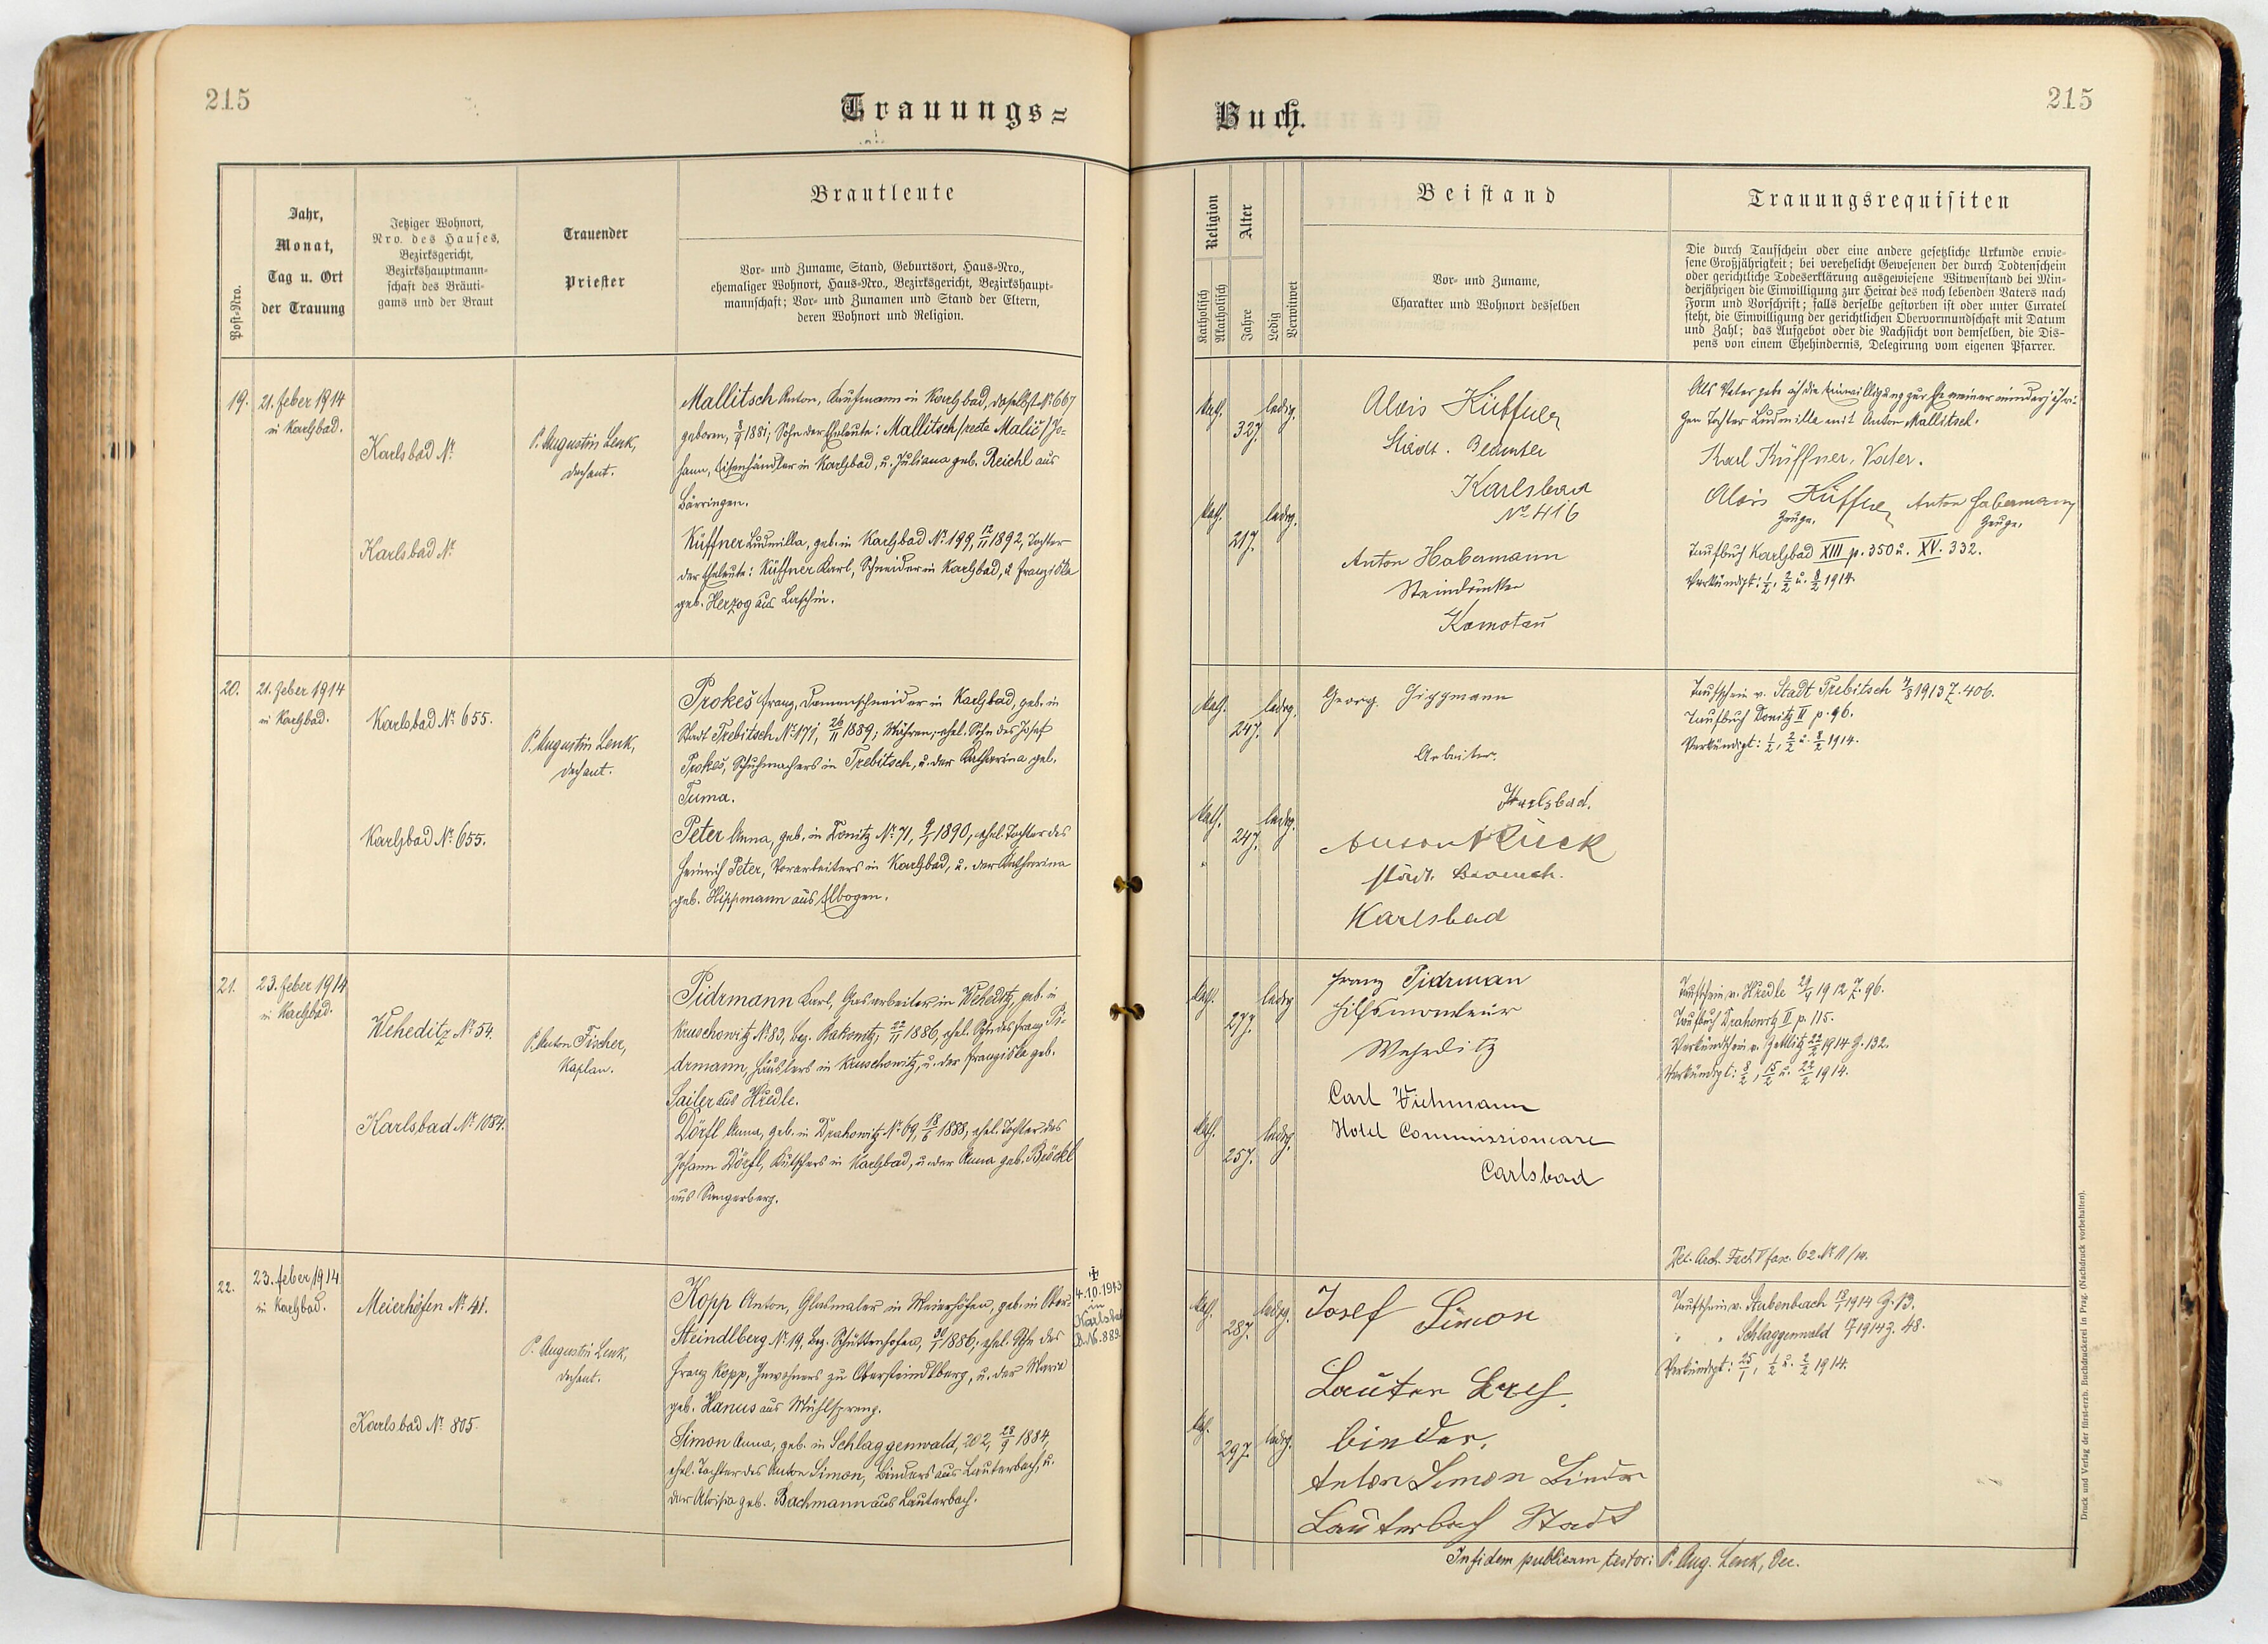 215
Trauungs=
Post-Nro.
Jahr,
Monat,
Tag u. Ort
der Trauung
Jetziger Wohnort,
Nro. des Hauses,
Bezirksgericht,
Bezirkshauptmann-
schaft des Bräuti-
gams und der Braut
Trauender
Priester
Brautleute
Vor- und Zuname, Stand, Geburtsort, Haus-Nro.,
ehemaliger Wohnort, Haus-Nro., Bezirksgericht, Bezirkshaupt-
mannschaft; Vor- und Zunamen und Stand der Eltern,
deren Wohnort und Religion.
19.
21. feber 1914
in Karlsbad.
Karlsbad No
Karlsbad No
P. Augustin Lenk,
Dechant.
Mallitsch Anton, Kaufmann in Karlsbad, daselbst No 667
geboren, 8/9 1881; Sohn der Eheleute: Mallitsch /recte Malič/ Jo-
hann, Eisenhändler in Karlsbad, u. Juliana geb. Reichl aus
Bärringen.
Küffner Ludmilla, geb. in Karlsbad No 199, 12/11 1892, Tochter
der Eheleute: Küffner Karl, Schneider in Karlsbad, u. Franziska
geb. Herzog aus Luschin.
20.
21. Feber 1914
in Karlsbad.
Karlsbad No 655.
Karlsbad No 655.
P. Augustin Lenk,
Dechant.
Prokeš Franz, Damenschneider in Karlsbad, geb. in
Stadt Trebitsch No 171, 26/11 1889; Mähren; ehel. Sohn des Josef
Prokeš, Schuhmachers in Trebitsch, u. der Katharina geb.
Tuma.
Peter Anna, geb. in Donitz No 71, 9/1 1890, ehel. Tochter des
Heinrich Peter, Vorarbeiters in Karlsbad, u. der Katharina
geb. Hippmann aus Elbogen.
21.
23. feber 1914
in Karlsbad.
Weheditz No 54.
Karlsbad No 1084.
P. Anton Fischer,
Kaplan.
Pidrmann Karl, Gasarbeiter in Weheditz, geb. in
Kruschowitz No 83, Bez. Rakonitz, 22/11 1886, ehel. Sohn des Franz Pi-
drmann, Häuslers in Kruschowitz, u. der Franziska geb.
Sailer aus Hředle.
Dörfl Anna, geb. in Drahowitz No 69, 18/6 1888; ehel. Tochter des
Johann Dörfl, Kutschers in Karlsbad, u. der Anna geb. Bröckl
aus Sangerberg.
22.
23. feber 1914
in Karlsbad.
Meierhöfen No 41.
Karlsbad No 805.
P. Augustin Lenk,
Dechant.
Kopp Anton, Glasmaler in Meierhöfen, geb. in Ober-
Steindlberg No 19, Bez. Schüttenhofen, 30/1 1886; ehel. Sohn des
Franz Kopp, Inwohners zu Obersteindlberg, u. der Maria
geb. Hanus aus Mühlspreng.
Simon Anna, geb. in Schlaggenwald, 202, 28/9 1884,
ehel. Tochter des Anton Simon, Binders aus Lauterbach, u.
der Aloisia geb. Bachmann aus Lauterbach.
4.10.1943
in
Karlsbad
B.No. 889
Buch.
215
Religion
Katholisch
Akatholisch
Alter
Jahre
Ledig
Verwitwet
Beistand
Vor- und Zuname,
Charakter und Wohnort desselben
Trauungsrequisiten
Die durch Taufschein oder eine andere gesetzliche Urkunde erwie-
sene Großjährigkeit; bei verehelicht Gewesenen der durch Todtenschein
oder gerichtliche Todeserklärung ausgewiesene Witwenstand bei Min-
derjährigen die Einwilligung zur Heirat des noch lebenden Vaters nach
Form und Vorschrift; falls derselbe gestorben ist oder unter Curatel
steht, die Einwilligung der gerichtlichen Obervormundschaft mit Datum
und Zahl; das Aufgebot oder die Nachsicht von demselben, die Dis-
pens von einem Ehehindernis, Delegirung vom eigenen Pfarrer.
Kath.
32 J.
ledig.
Kath.
21 J.
ledig.
Alois Küffner
Städt. Beamter
Karlsbad
No 416
Anton Habermann
Steindrucker
Komotau
Als Vater gebe ich die Einwilligung zur Ehe meiner minderjähri-
gen Tochter Ludmilla mit Anton Mallitsch.
Karl Küffner, Vater.
Alois Küffner Anton Habermann
Zeuge. Zeuge.
Taufbuch Karlsbad XIII p. 350 u. XV. 332.
Verkündigt: 1/2, 2/2 u. 8/2 1914.
Kath.
24 J.
ledig.
Kath.
24 J.
ledig.
Georg Hippmann
Arbeiter.
Karlsbad.
Karlsbad
Taufschein v. Stadt Trebitsch 4/3 1913 Z. 406.
Taufbuch Donitz II p. 96.
Verkündigt: 1/2, 2/2 u. 8/2 1914.
Kath.
27 J.
ledig
Kath.
25 J.
ledig.
Franz Pidrman
Hilfsmonteur
Weheditz
Carl Wiehmann
Hotel Commissioneare
Carlsbad
Taufschein v. Hředle 29/4 1912 Z. 96.
Taufbuch Drahowitz II p. 115.
Verkündschein v. Zettlitz 22/2 1914 Z. 132.
Verkündigt: 8/2, 15/2 u. 22/2 1914.
Del. Arch. Fach V fasc. 62 No 11/14.
Kath.
28 J.
ledig.
Kath.
29 J.
ledig.
Josef Simon
Lauterbach
binder.
Anton Simon Binder
Lauterbach Stadt
Taufschein v. Stubenbach 18/1 1914 Z. 13.
" " Schlaggenwald 1914 Z. 48.
Verkündigt: 25/1, 1/2 u. 2/2 1914.
In fidem publicam testor: P. Aug. Lenk, Dec.
Druck und Verlag der fürst-erzb. Buchdruckerei in Prag. (Nachdruck vorbehalten).